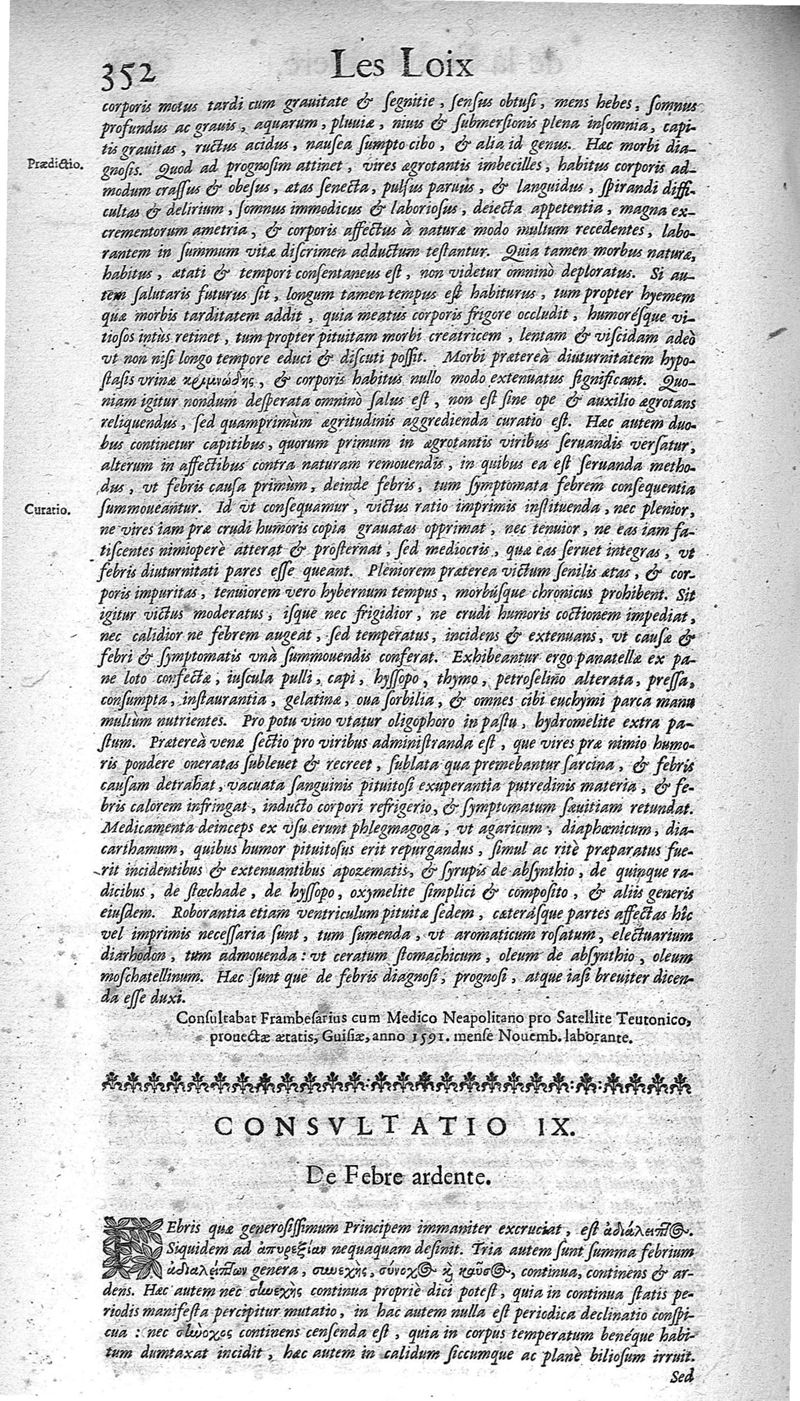 352 Les Loix
corporis motus tardi cum grauitate & segnitie, sensus obtusi, mens hebes, somnus
profundus ac grauis, aquarum, pluuiæ, niuis & submersionis plena insomnia, capi-
tis grauitas, ructus acidus, nausea sumpto cibo, & alia id genus. Hæc morbi dia-
Prædictio.
gnosis. Quod ad prognosim attinet, vires ægrotantis imbecilles, habitus corporis ad-
modum crassus & obesus, ætas senecta, pulsus paruus, & languidus, spirandi diffi-
cultas & delirium, somnus immodicus & laboriosus, deiecta appetentia, magna ex-
crementorum ametria, & corporis affectus à naturæ modo multum recedentes, labo-
rantem in summum vitæ discrimen adductum testantur. Quia tamen morbus naturæ,
habitus, ætati & tempori consentaneus est, non videtur omninò deploratus. Si au-
tem salutaris futurus sit, longum tamen tempus est habiturus, tum propter hyemem
quæ morbis tarditatem addit, quia meatus corporis frigore occludit, humorésque vi-
tiosos intùs retinet, tum propter pituitam morbi creatricem, lentam & viscidam adeò
vt non nisi longo tempore educi & discuti possit. Morbi prætereà diuturnitatem hypo-
stasis vrinæ κριμνώδης, & corporis habitus nullo modo extenuatus significant. Quo-
niam igitur nondum desperata omninò salus est, non est sine ope & auxilio ægrotans
reliquendus, sed quamprimùm ægritudinis aggredienda curatio est. Hæc autem duo-
bus continetur capitibus, quorum primum in ægrotantis viribus seruandis versatur,
alterum in affectibus contra naturam remouendis, in quibus ea est seruanda metho-
dus, vt febris causa primùm, deinde febris, tum symptomata febrem consequentia
Curatio.
summoueantur. Id vt consequamur, victus ratio imprimis instituenda, nec plenior,
ne vires iam præ crudi humoris copia grauatas opprimat, nec tenuior, ne eas iam fa-
tiscentes nimioperè atterat & prosternat, sed mediocris, quæ eas seruet integras, vt
febris diuturnitati pares esse queant. Pleniorem præterea victum senilis ætas, & cor-
poris impuritas, tenuiorem vero hybernum tempus, morbúsque chronicus prohibent. Sit
igitur victus moderatus, isque nec frigidior, ne crudi humoris coctionem impediat,
nec calidior ne febrem augeat, sed temperatus, incidens & extenuans, vt causæ &
febri & symptomatis vnà summouendis conferat. Exhibeantur ergo panatellæ ex pa-
ne loto confectæ, iuscula pulli, capi, hyssopo, thymo, petroselino alterata, pressa,
consumpta, instaurantia, gelatinæ, oua sorbilia, & omnes cibi euchymi parca manu
multùm nutrientes. Pro potu vino vtatur oligophoro in pastu, hydromelite extra pa-
stum. Prætereà venæ sectio pro viribus administranda est, que vires præ nimio humo-
ris pondere oneratas subleuet & recreet, sublata qua premebantur sarcina, & febris
causam detrahat, vacuata sanguinis pituitosi exuperantia putredinis materia, & fe-
bris calorem infringat, inducto corpori refrigerio, & symptomatum sæuitiam retundat.
Medicamenta deinceps ex vsu erunt phlegmagoga, vt agaricum, diaphœnicum, dia-
carthamum, quibus humor pituitosus erit repurgandus, simul ac ritè præparatus fue-
rit incidentibus & extenuantibus apozematis, & syrupis de absynthio, de quinque ra-
dicibus, de stœchade, de hyssopo, oxymelite simplici & composito, & aliis generis
eiusdem. Roborantia etiam ventriculum pituitæ sedem, cæterásque partes affectas hîc
vel imprimis necessaria sunt, tum sumenda, vt aromaticum rosatum, electuarium
diarhodon, tum admouenda: vt ceratum stomachicum, oleum de absynthio, oleum
moschatellinum. Hæc sunt que de febris diagnosi, prognosi, atque iasi breuiter dicen-
da esse duxi.
Consultabat Frambesarius cum Medico Neapolitano pro Satellite Teutonico,
prouectæ ætatis, Guisiæ, anno 1591. mense Nouemb. laborante.
CONSVLTATIO IX.
De Febre ardente.
FEbris quæ generosissimum Principem immaniter excruciat, est ἀδιάλειπτος.
Siquidem ad ἀπυρεξίαν nequaquam desinit. Tria autem sunt summa febrium
ἀδιαλείπτων genera, συνεχὴς, σύνοχος καὶ καῦσος, continua, continens & ar-
dens. Hæc autem nec συνεχὴς continua propriè dici potest, quia in continua statis pe-
riodis manifesta percipitur mutatio, in hac autem nulla est periodica declinatio conspi-
cua: nec σύνοχος continens censenda est, quia in corpus temperatum benéque habi-
tum dumtaxat incidit, hæc autem in calidum siccumque ac planè biliosum irruit.
Sed